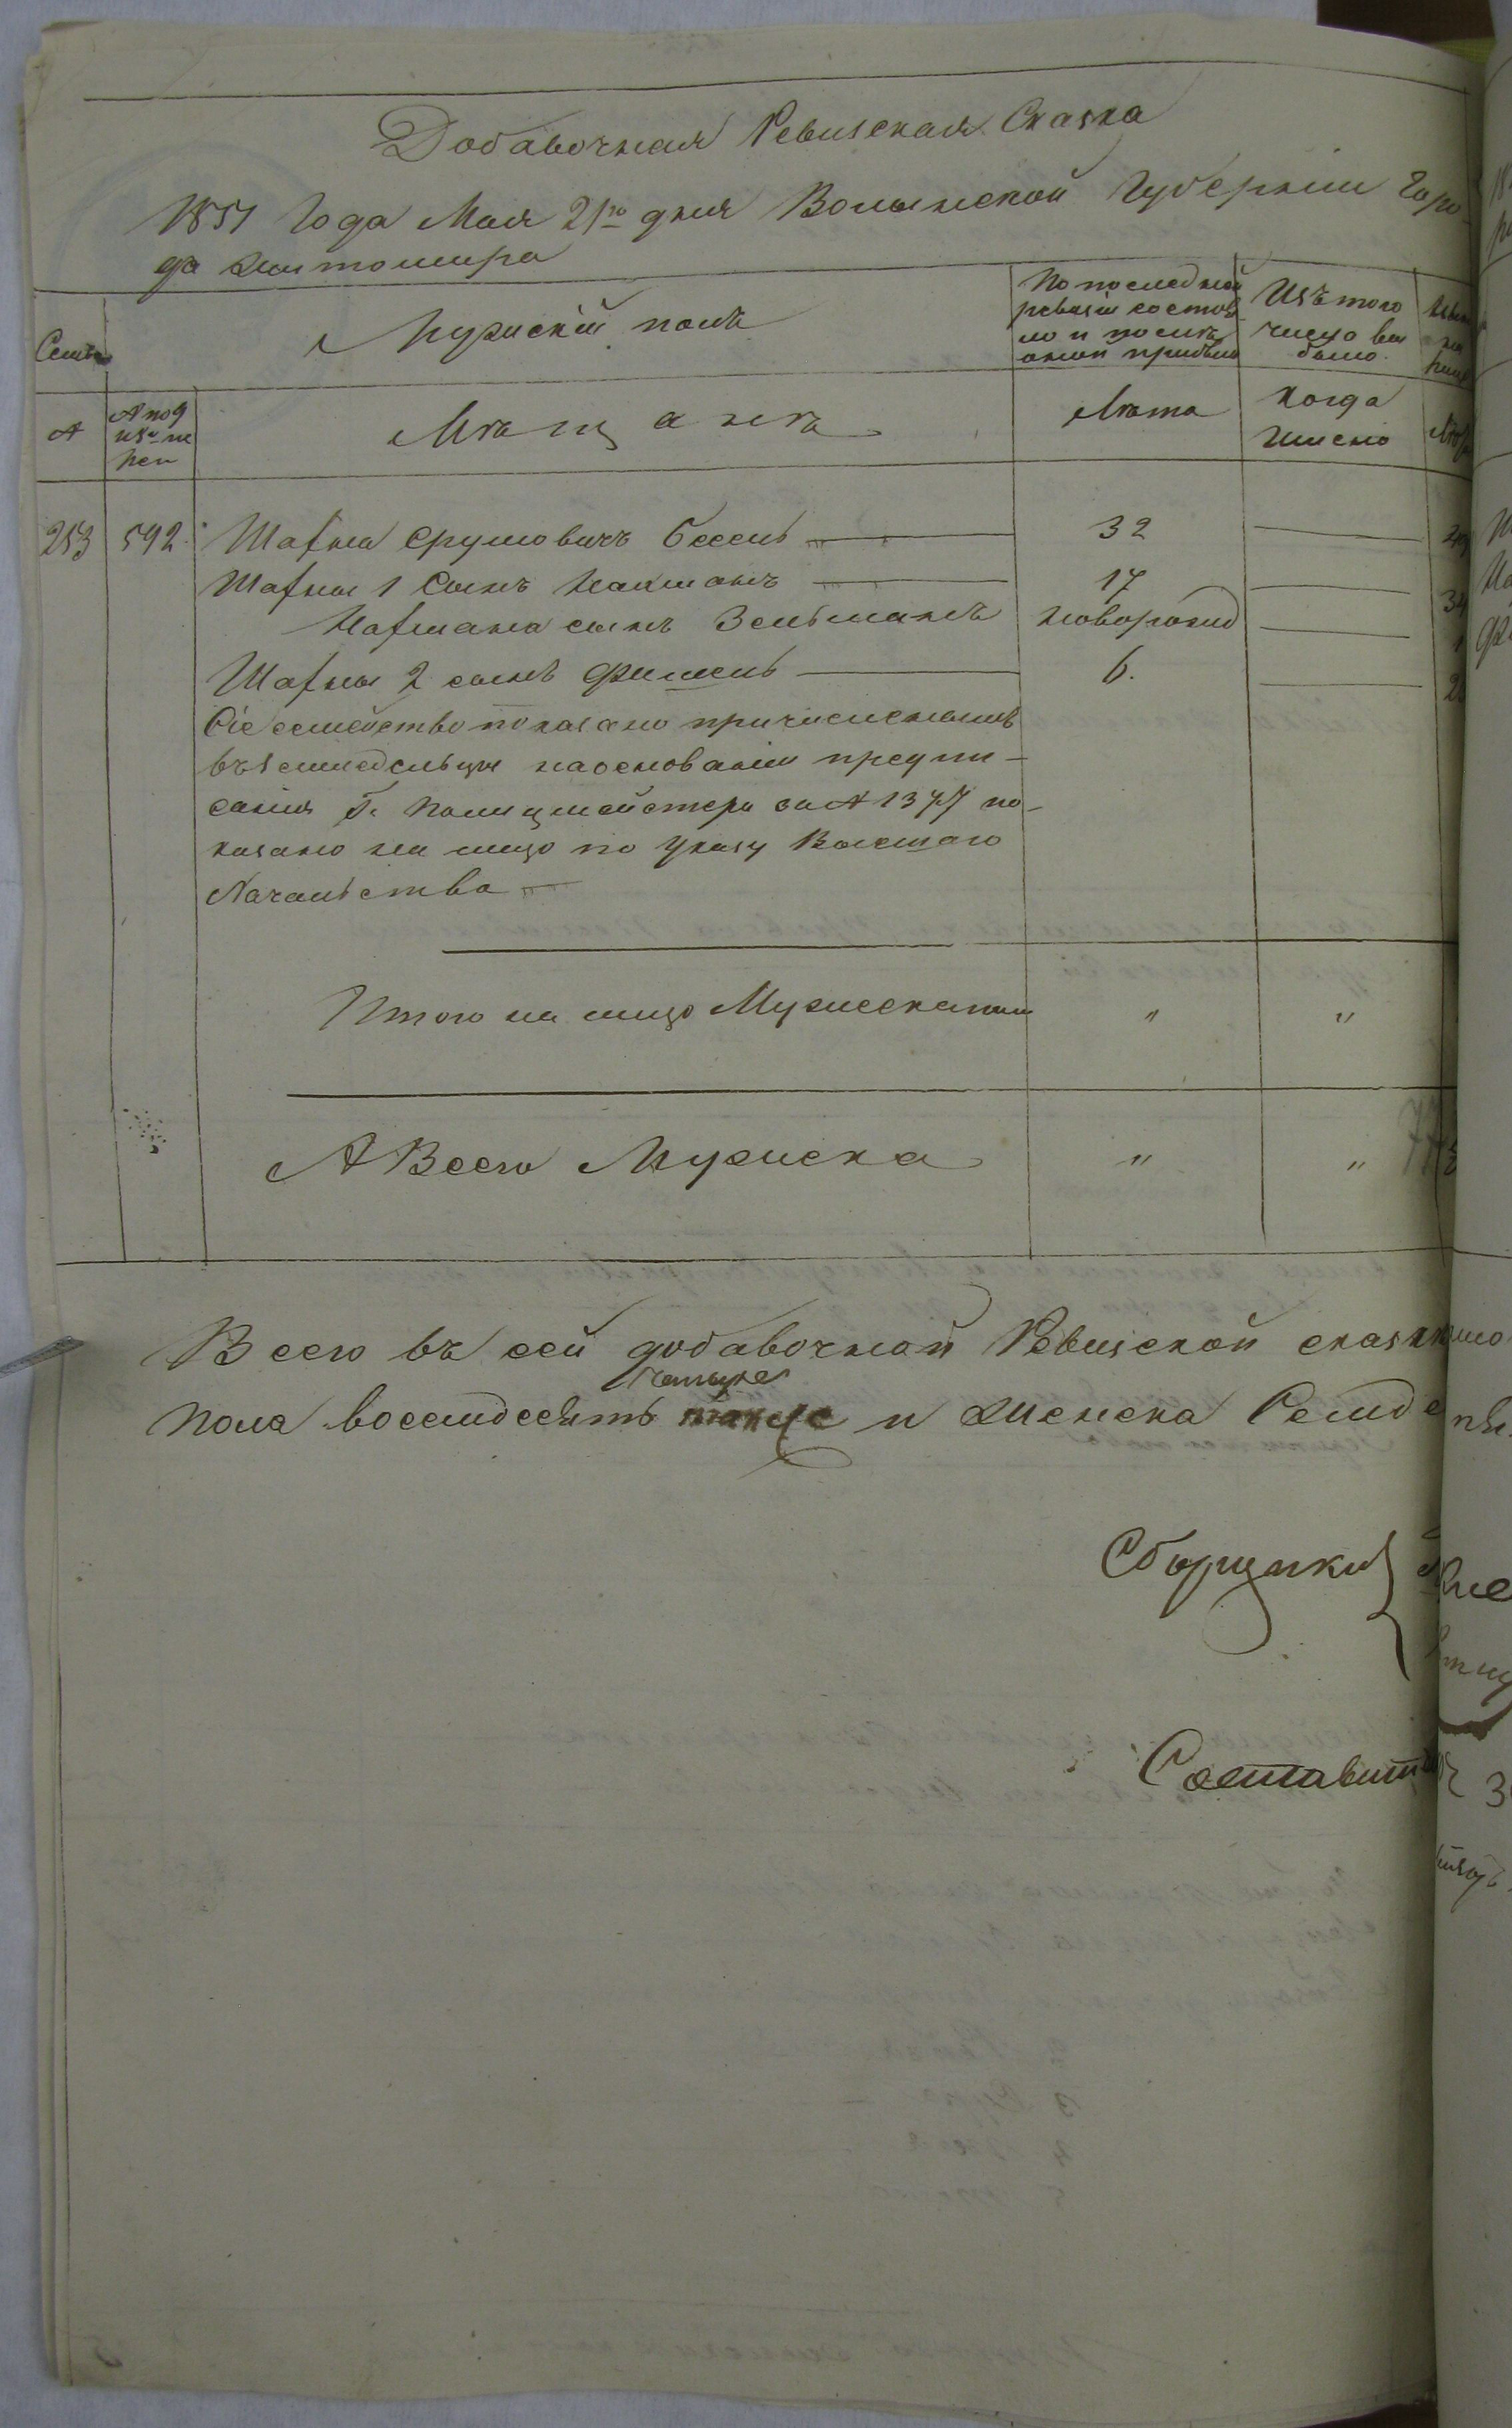 Добавочная Ревизская Сказка
1851 Года Мая 21го дня Волынской Губерніи Горо-
да Житомира
Семьи
Мужескій полъ
По последней
ревизіи состоя
ло и после
оной прибыло
Изъ того
число вы
было
№
№ под
Мѣщанѣ
Лѣта
Когда
Имено
253 592 Шахна Срулiовичъ 32
Шахны 1 Сынъ Нахманъ 17
Нахмана сынъ Зельманъ новорожд
Шахны 2 сынъ Фишель 6.
Сіе семейство показано причисленнымъ
въ земледельцы на основаніи предпи-
санія Г. Полицмейстера за № 1377 по-
казано на лицо по Указу Высшаго
Начальства
Итого на лицо Мужеска пол " "
А Всего Мужеска " "
Всего въ сей добавочной Ревизской сказк
четыре
пола восемдесятъ и женска
Сборщики
Составит